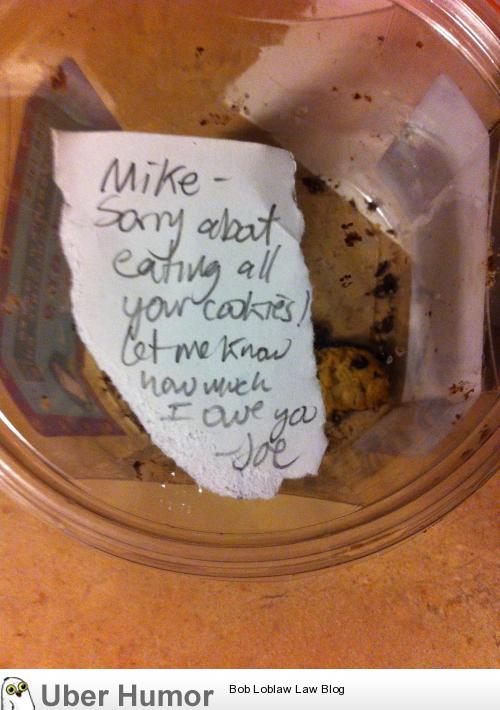 Mike -
Sorry about
eating all
your cookies!
Let me know
how much
I owe you
-Joe
Uber Humor
Bob Loblaw Law Blog